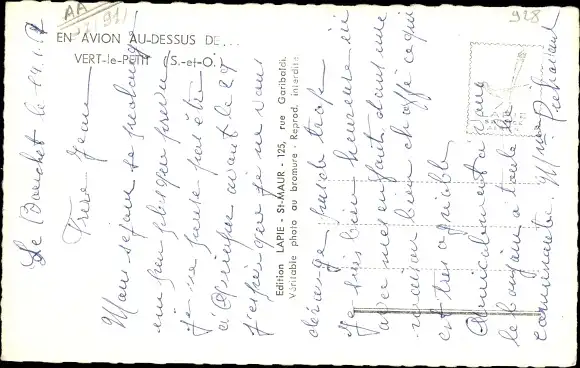 AA
928
EN AVION AU-DESSUS DE...
VERT-le-PETIT (S.-et-O.)
Edition LAPIE - St-MAUR - 125, rue Garibaldi
Véritable photo au bromure - Reprod. interdite
Le Bouchet le
Frère Jean
Mon séjour se prolonge
un peu plus que prévu
je ne pense pas être
à avant le 29
j'espère que je ne vous
dérange pas de trop
je suis bien heureuse ici
avec mes enfants dans une
maison bien chauffé ce qui
est très agréable
Amicalement à vous
le bonjour à toute la
communauté. Mme